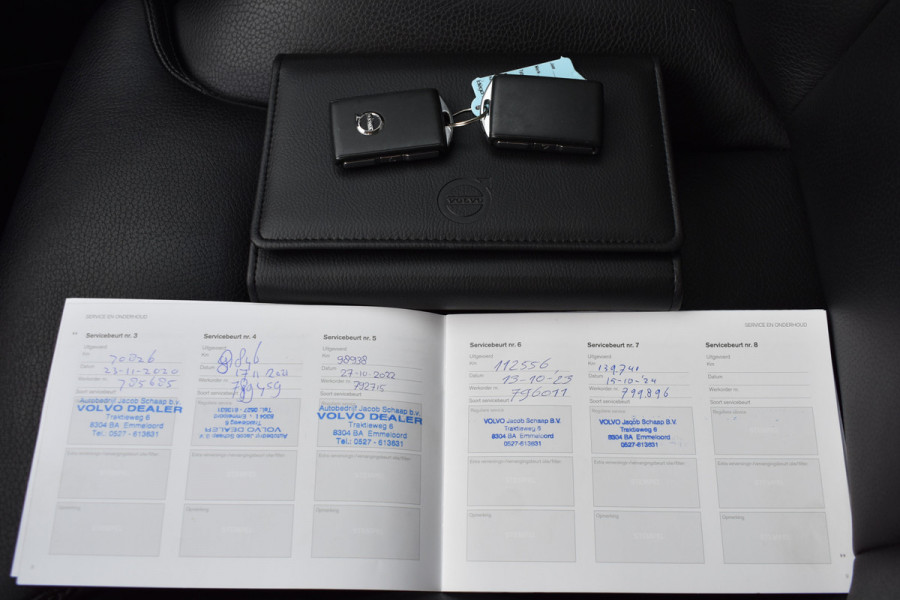 VOLVO
VOLVO
SERVICE EN ONDERHOUD
Servicebeurt nr. 3
Uitgevoerd
Km 70826
Datum 23-11-2020
Werkorder nr. 785685
Soort servicebeurt
Autobedrijf Jacob Schaap b.v.
VOLVO DEALER
Traktieweg 6
8304 BA Emmeloord
Tel.: 0527 - 613631
Opmerking
Servicebeurt nr. 4
Uitgevoerd
Km
Datum 17 11 2021
Werkorder nr.
Soort servicebeurt
Autobedrijf Jacob Schaap b.v.
VOLVO DEALER
Traktieweg 6
8304 BA Emmeloord
Tel.: 0527 - 613631
Opmerking
Servicebeurt nr. 5
Uitgevoerd
Km 98938
Datum 27-10-2022
Werkorder nr. 792715
Soort servicebeurt
Autobedrijf Jacob Schaap b.v.
VOLVO DEALER
Traktieweg 6
8304 BA Emmeloord
Tel.: 0527 - 613631
Opmerking
SERVICE EN ONDERHOUD
Servicebeurt nr. 6
Uitgevoerd
Km 112556
Datum 13-10-23
Werkorder nr. 796011
Soort servicebeurt
VOLVO Jacob Schaap B.V.
Traktieweg 6
8304 BA Emmeloord
0527-613631
Opmerking
Servicebeurt nr. 7
Uitgevoerd
Km 139.741
Datum 15-10-'24
Werkorder nr. 799.896
Soort servicebeurt
VOLVO Jacob Schaap B.V.
Traktieweg 6
8304 BA Emmeloord
0527-613631
Opmerking
Servicebeurt nr. 8
Uitgevoerd
Km
Datum
Werkorder nr.
Soort servicebeurt
Opmerking